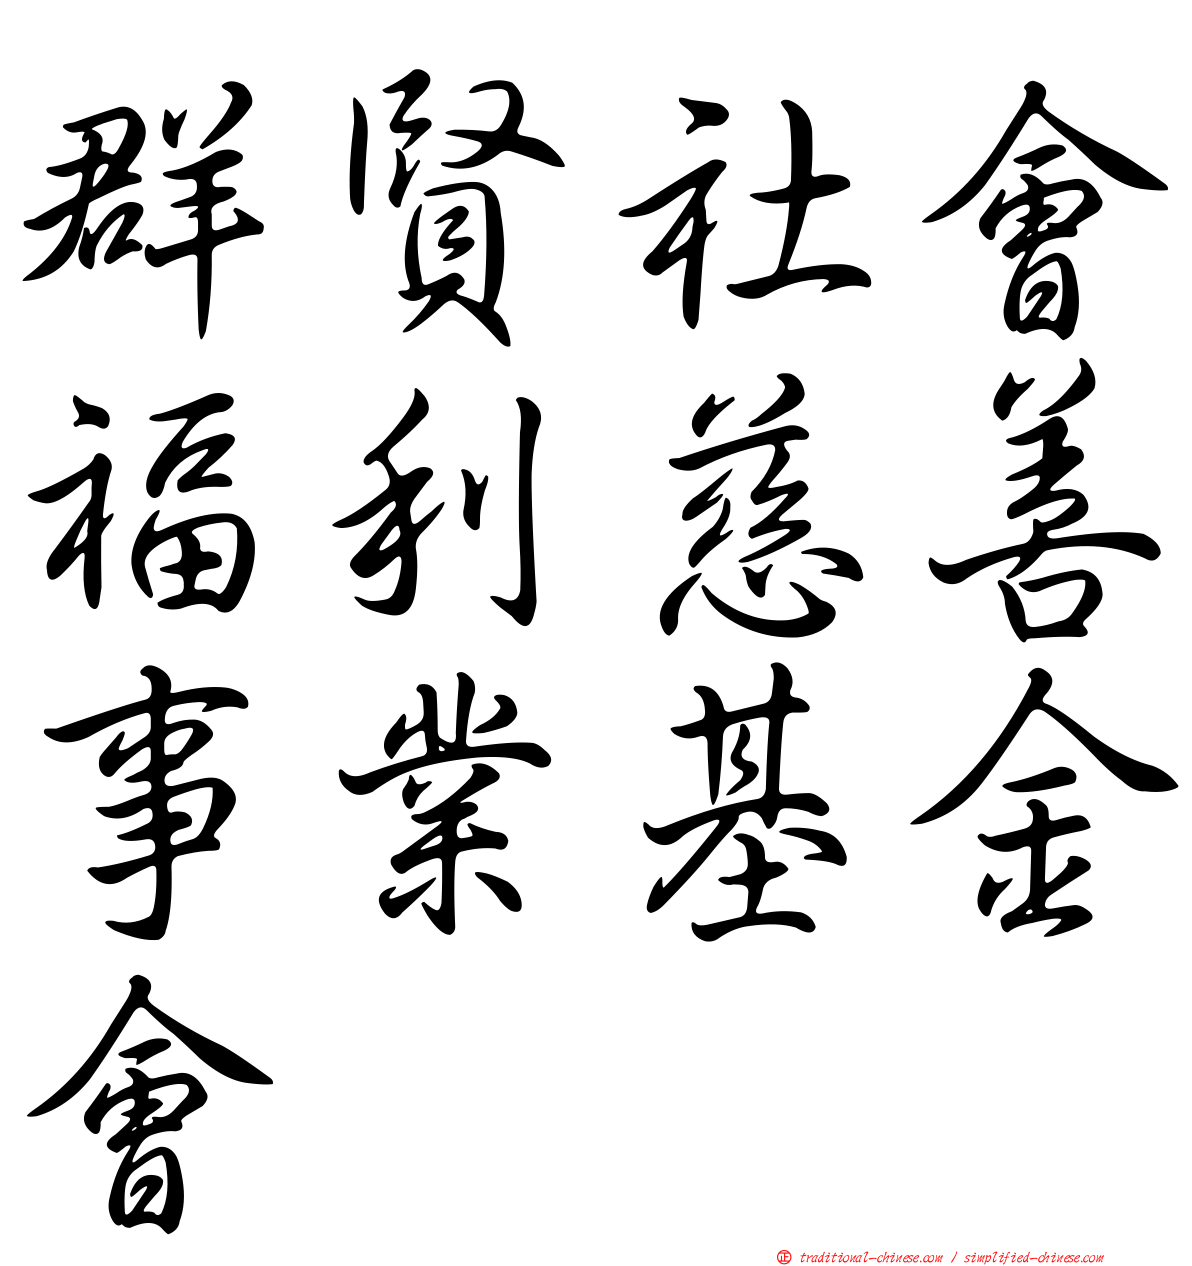 群賢社會
福利慈善
事業基金
會
正 traditional-chinese.com / simplified-chinese.com